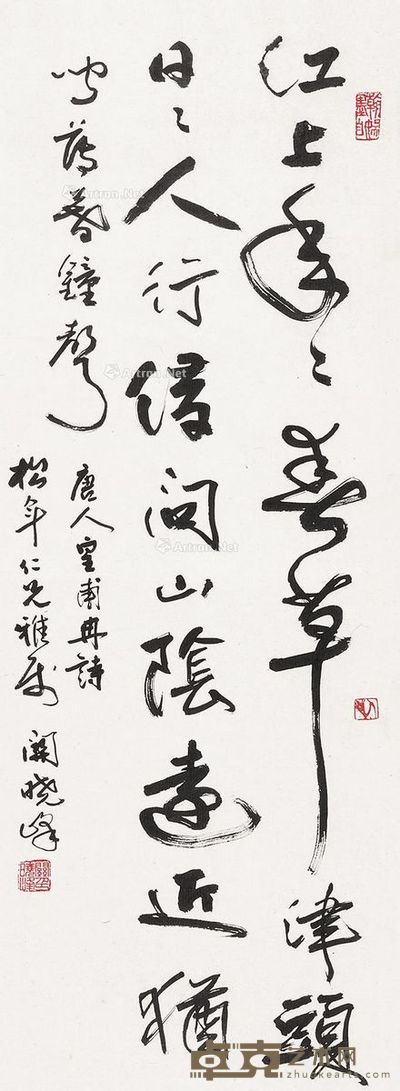 江上年々春草津頭
日々人行借問山陰遠近猶
聞薄暮鐘聲
唐人皇甫冉詩
松年仁兄雅属 關曉峰
Artron.Net
卓克艺术网
zhuokearts.com